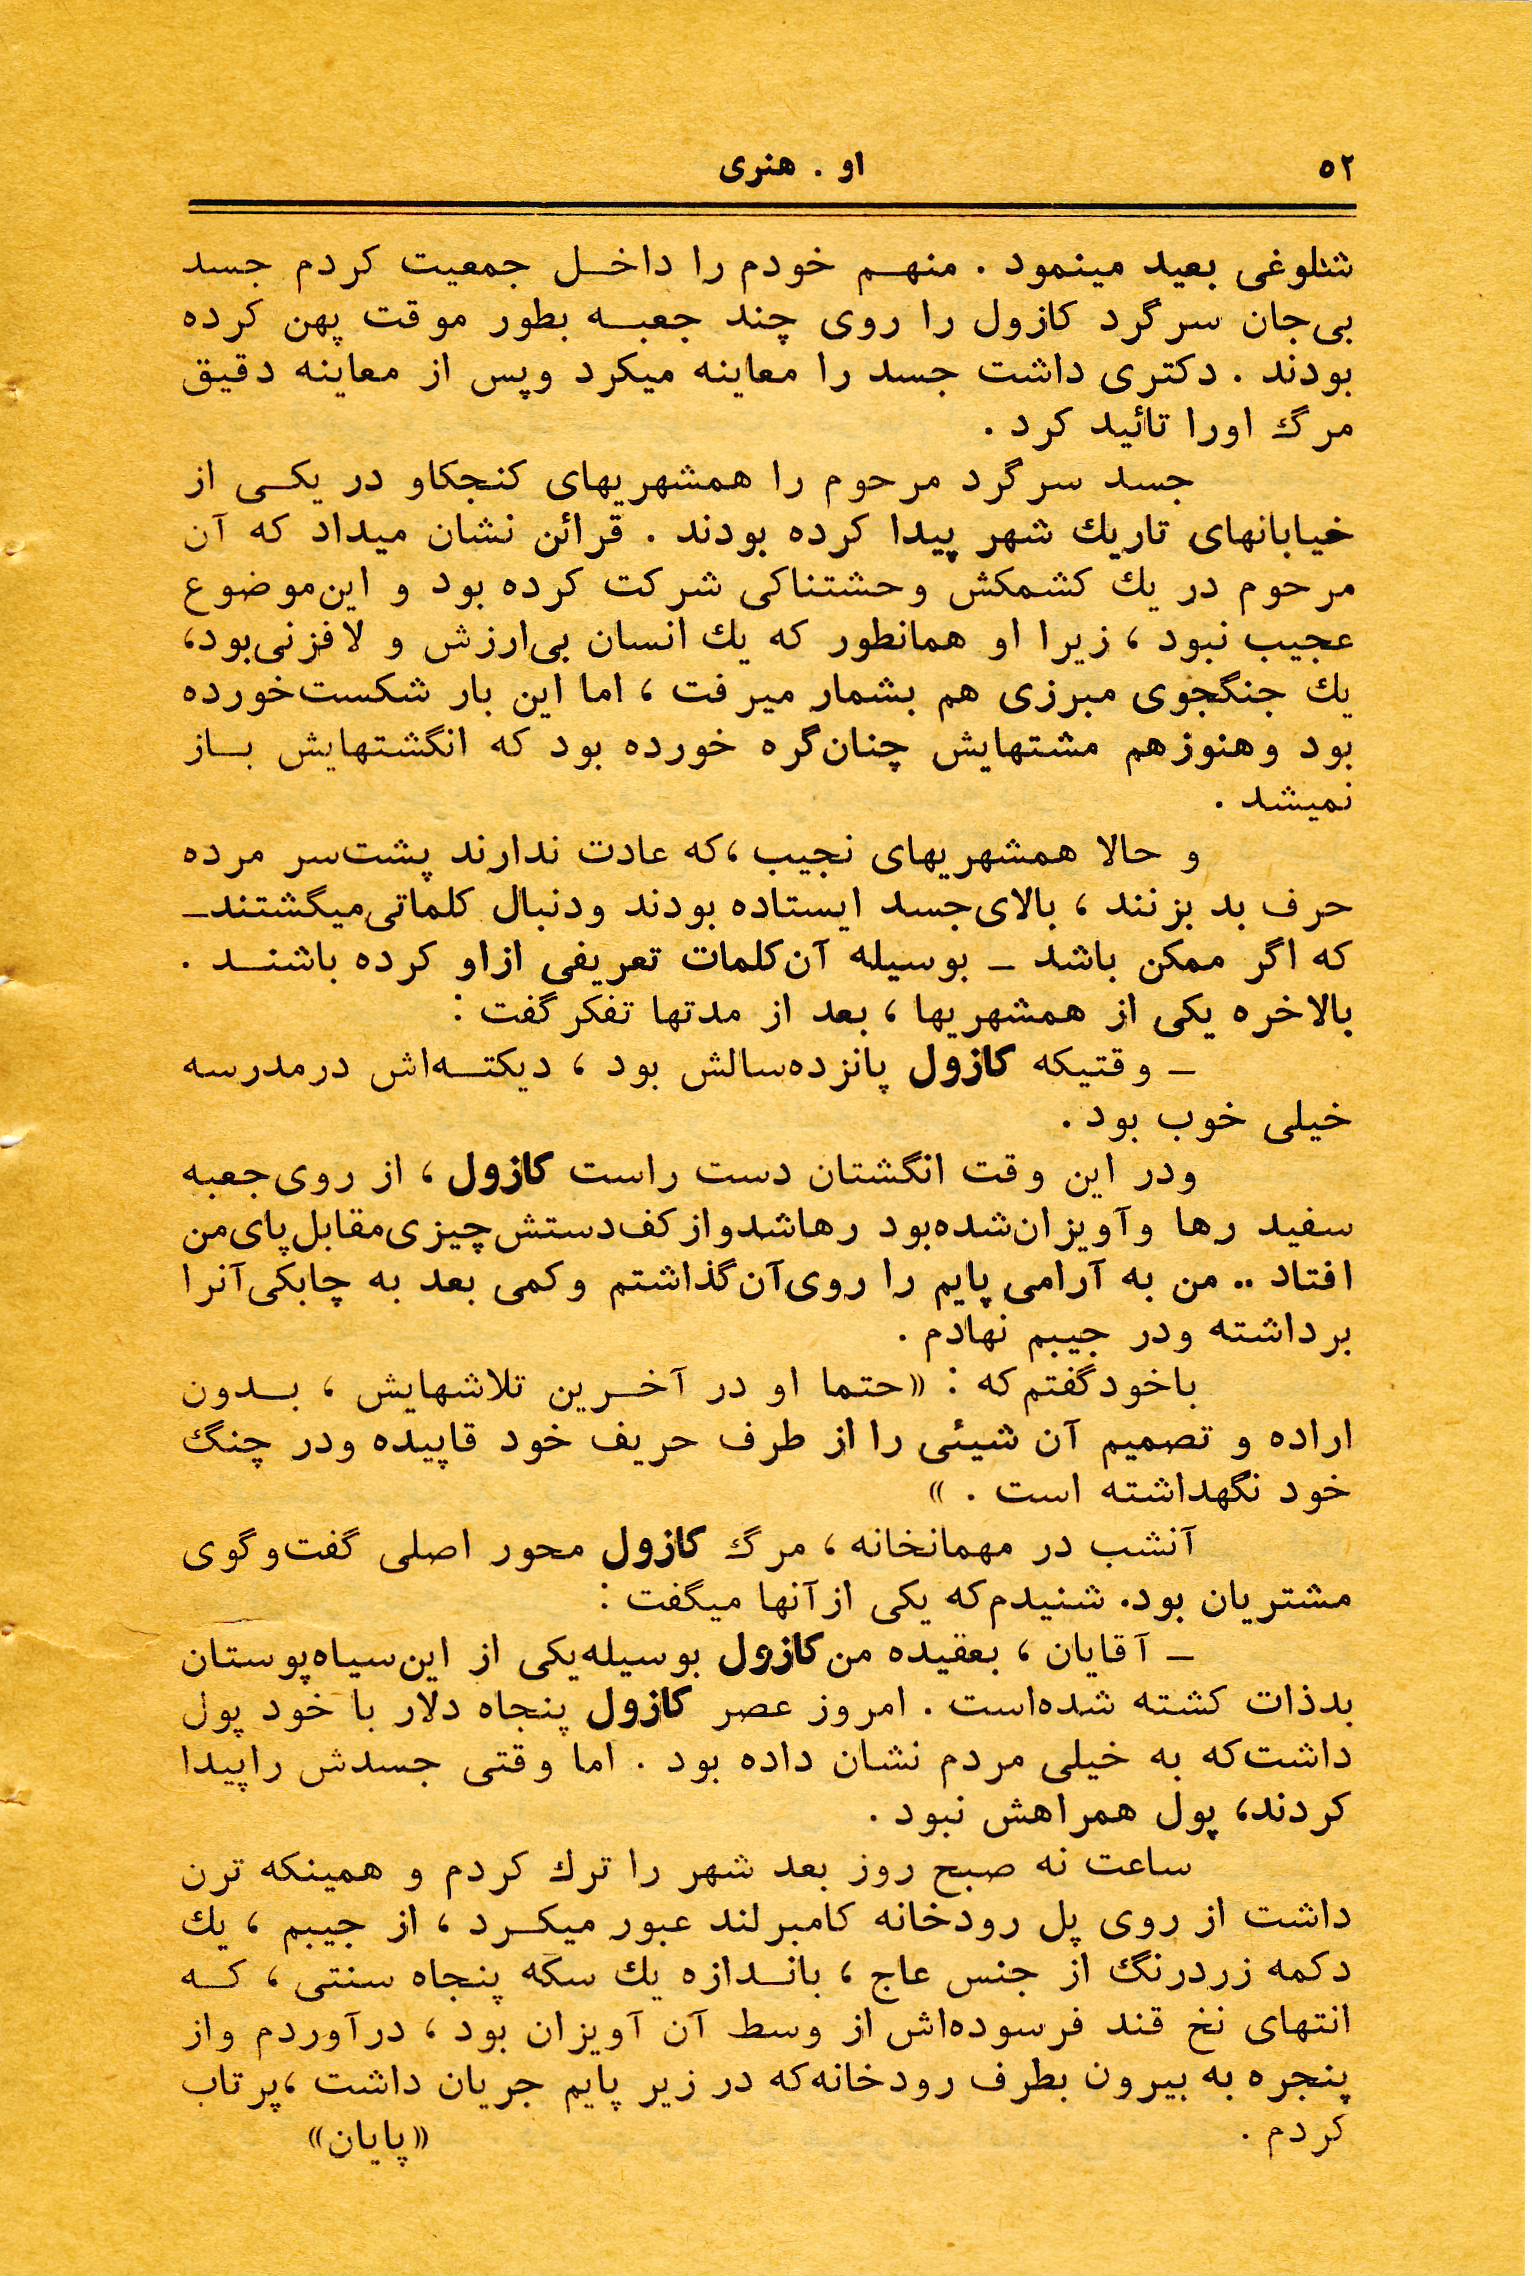 ۵۲
او . هنری
شلوغی بعید مینمود . منهم خودم را داخل جمعیت کردم جسد
بی‌جان سرگرد کازول را روی چند جعبه بطور موقت پهن کرده
بودند . دکتری داشت جسد را معاینه میکرد وپس از معاینه دقیق
مرگ اورا تائید کرد .
جسد سرگرد مرحوم را همشهریهای کنجکاو در یکی از
خیابانهای تاریك شهر پیدا کرده بودند . قرائن نشان میداد که آن
مرحوم در یك کشمکش وحشتناکی شرکت کرده بود و این‌موضوع
عجیب نبود ، زیرا او همانطور که یك انسان بی‌ارزش و لافزنی‌بود،
یك جنگجوی مبرزی هم بشمار میرفت ، اما این بار شکست‌خورده
بود وهنوزهم مشتهایش چنان‌گره خورده بود که انگشتهایش باز
نمیشد .
و حالا همشهریهای نجیب ،که عادت ندارند پشت‌سر مرده
حرف بد بزنند ، بالای‌جسد ایستاده بودند ودنبال کلماتی‌میگشتند_
که اگر ممکن باشد _ بوسیله آن‌کلمات تعریفی ازاو کرده باشند .
بالاخره یکی از همشهریها ، بعد از مدتها تفکر گفت :
_ وقتیکه کازول پانزده‌سالش بود ، دیکته‌اش درمدرسه
خیلی خوب بود .
ودر این وقت انگشتان دست راست کازول ، از روی‌جعبه
سفید رها وآویزان‌شده‌بود رهاشدوازکف‌دستش‌چیزی‌مقابل‌پای‌من
افتاد .. من به آرامی پایم را روی‌آن‌گذاشتم وکمی بعد به چابکی‌آنرا
برداشته ودر جیبم نهادم .
باخودگفتم‌که : «حتما او در آخرین تلاشهایش ، بدون
اراده و تصمیم آن شیئی را از طرف حریف خود قاپیده ودر چنگ
خود نگهداشته است . »
آنشب در مهمانخانه ، مرگ کازول محور اصلی گفت‌وگوی
مشتریان بود. شنیدم‌که یکی ازآنها میگفت :
_ آقایان ، بعقیده من کازول بوسیله‌یکی از این‌سیاه‌پوستان
بدذات کشته شده‌است . امروز عصر کازول پنجاه دلار با خود پول
داشت‌که به خیلی مردم نشان داده بود . اما وقتی جسدش راپیدا
کردند، پول همراهش نبود .
ساعت نه صبح روز بعد شهر را ترك کردم و همینکه ترن
داشت از روی پل رودخانه کامبرلند عبور میکرد ، از جیبم ، یك
دکمه زردرنگ از جنس عاج ، باندازه یك سکه پنجاه سنتی ، که
انتهای نخ قند فرسوده‌اش از وسط آن آویزان بود ، درآوردم واز
پنجره به بیرون بطرف رودخانه‌که در زیر پایم جریان داشت ،پرتاب
کردم .
«پایان»